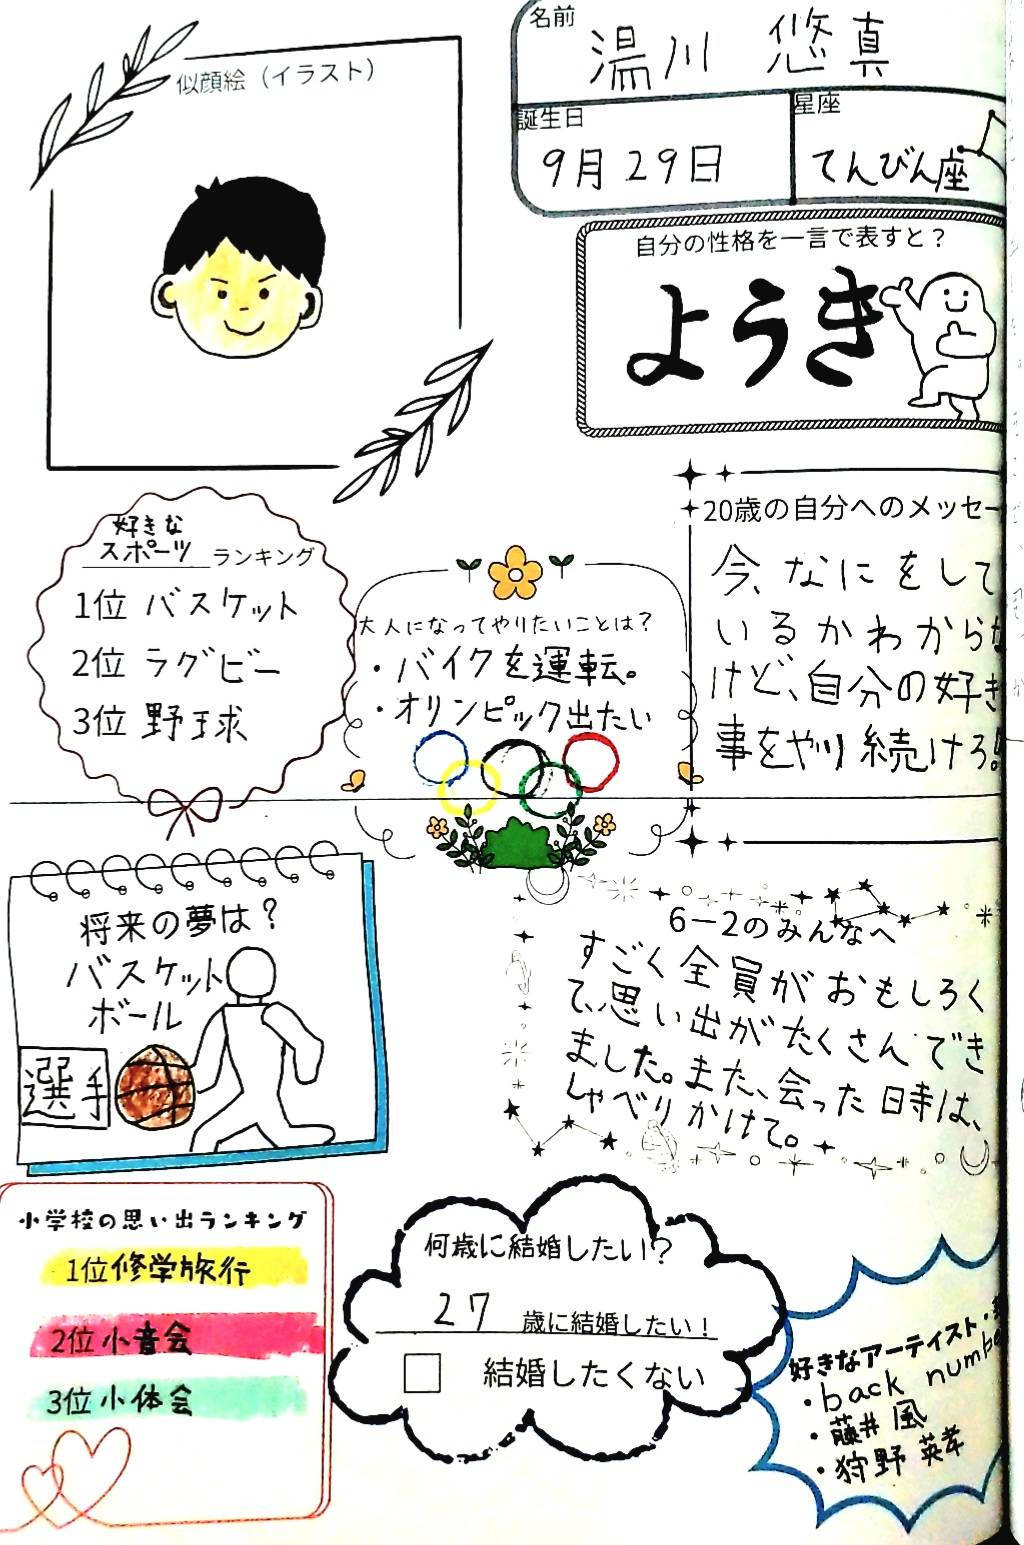 似顔絵（イラスト）
名前
湯川 悠真
誕生日
9月29日
星座
てんびん座
自分の性格を一言で表すと？
ようき
好きな
スポーツ ランキング
1位 バスケット
2位 ラグビー
3位 野球
大人になってやりたいことは？
・バイクを運転。
・オリンピック出たい
20歳の自分へのメッセー
今、なにをして
いるかわからな
けど、自分の好き
事をやり続けろ!!
将来の夢は？
バスケット
ボール
選手
6－2のみんなへ
すごく全員がおもしろく
て、思い出がたくさんでき
ました。また、会った日時は、
しゃべりかけて。
小学校の思い出ランキング
1位修学旅行
2位小音会
3位小体会
何歳に結婚したい？
27 歳に結婚したい！
結婚したくない
好きなアーティスト・
・back numbe
・藤井 風
・狩野 英孝